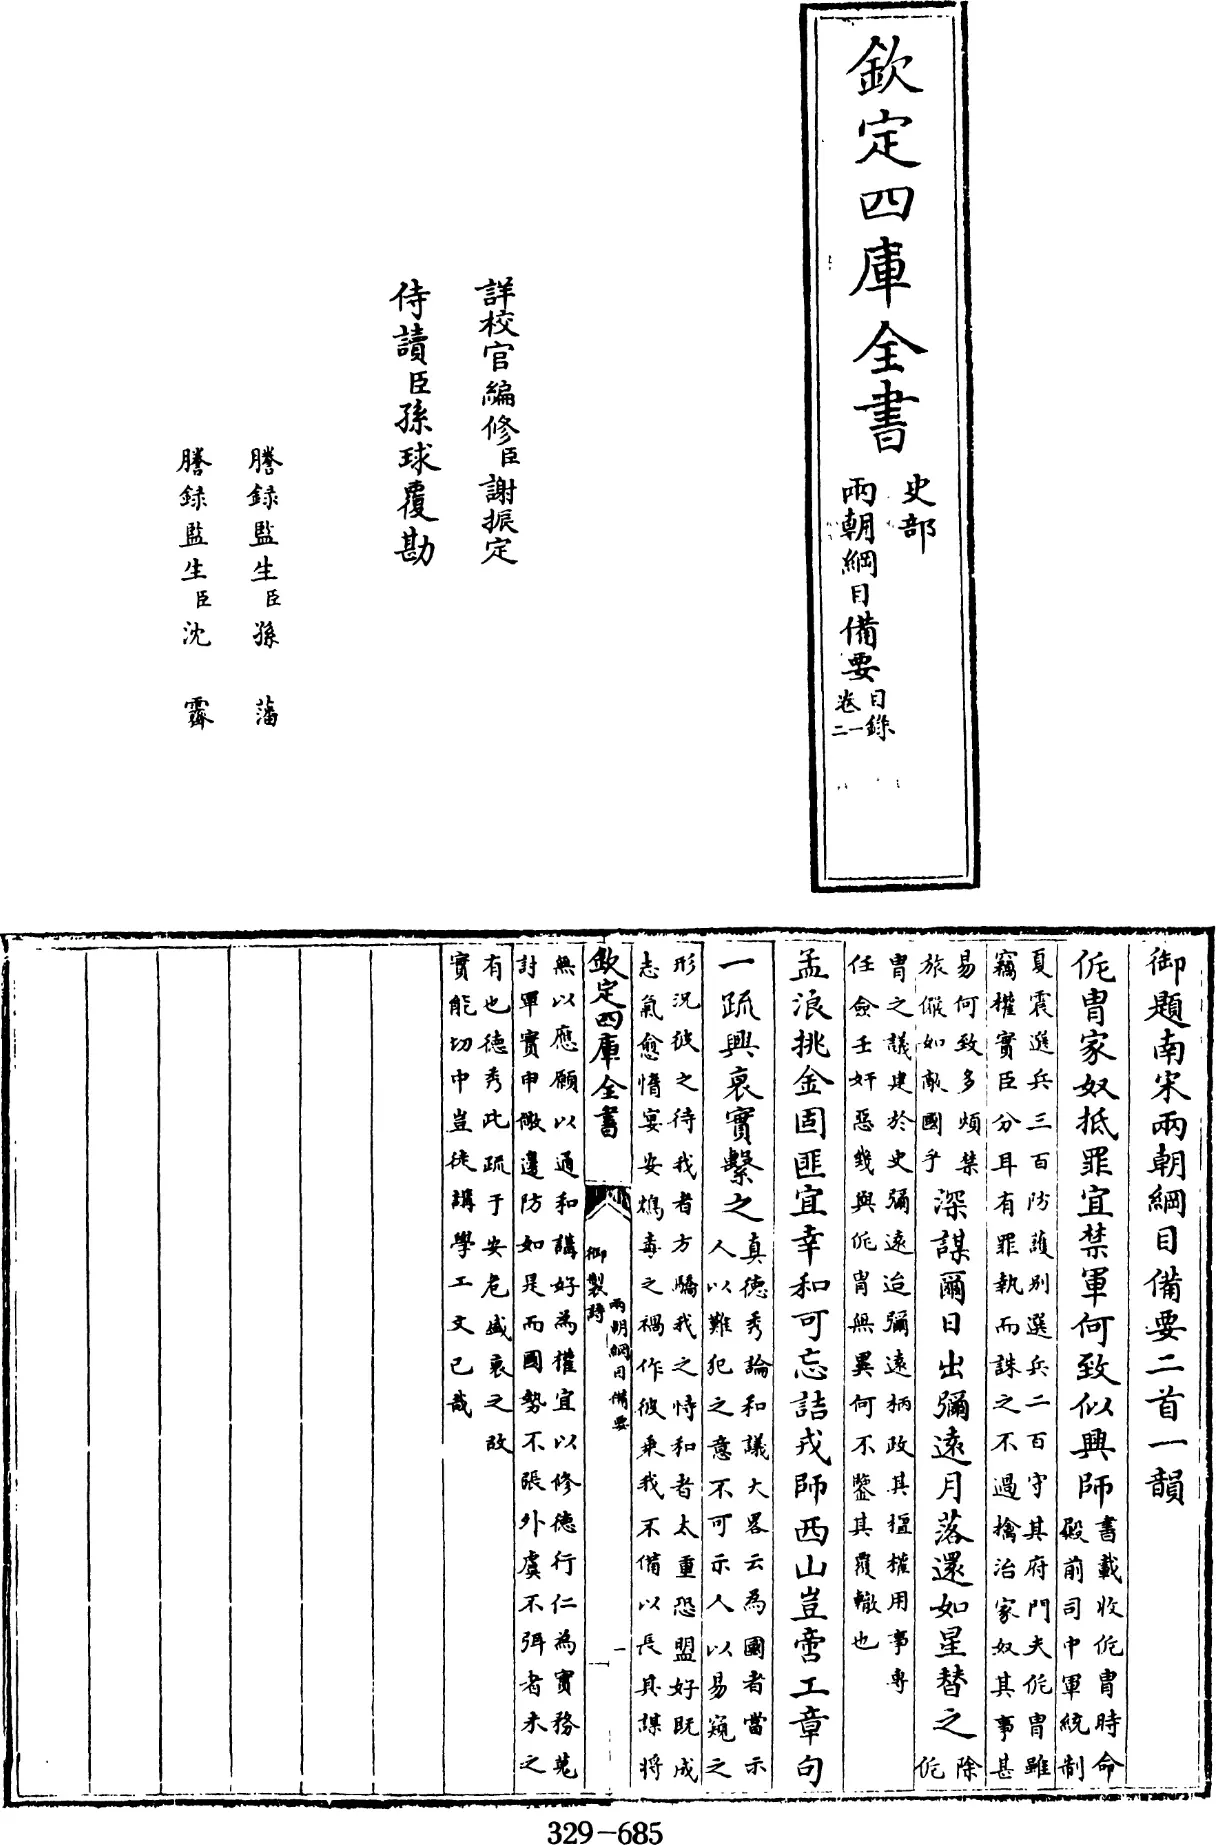 欽定四庫全書
史部
兩朝綱目備要
目錄
卷一二
詳校官編修臣謝振定
侍讀臣孫球覆勘
謄録監生臣孫藩
謄録監生臣沈霽
御題南宋兩朝綱目備要二首一韻
侂胄家奴抵罪宜禁軍何致似興師
書載收侂胄時命
殿前司中軍統制
夏震選兵三百防護别選兵二百守其府門夫侂胄雖
竊權實臣分耳有罪執而誅之不過擒治家奴其事甚
易何致多煩禁
旅儼如敵國乎
深謀爾日出彌遠月落還如星替之
除
侂
胄之議建於史彌遠迨彌遠柄政其擅權用事專
任僉壬奸惡幾與侂胄無異何不鑒其覆轍也
孟浪挑金固匪宜幸和可忘詰戎師西山豈啻工章句
一疏興衰實繫之
真德秀論和議大畧云為國者當示
人以難犯之意不可示人以易窺之
形況彼之待我者方驕我之恃和者太重恐盟好既成
志氣愈惰宴安鴆毒之禍作彼乘我不備以長其謀將
欽定四庫全書
兩朝綱目備要
御製詩
一
無以應願以通和講好為權宜以修德行仁為實務蒐
討軍實申儆邊防如是而國勢不張外虞不弭者未之
有也德秀此疏于安危盛衰之故
實能切中豈徒講學工文已哉
329-685